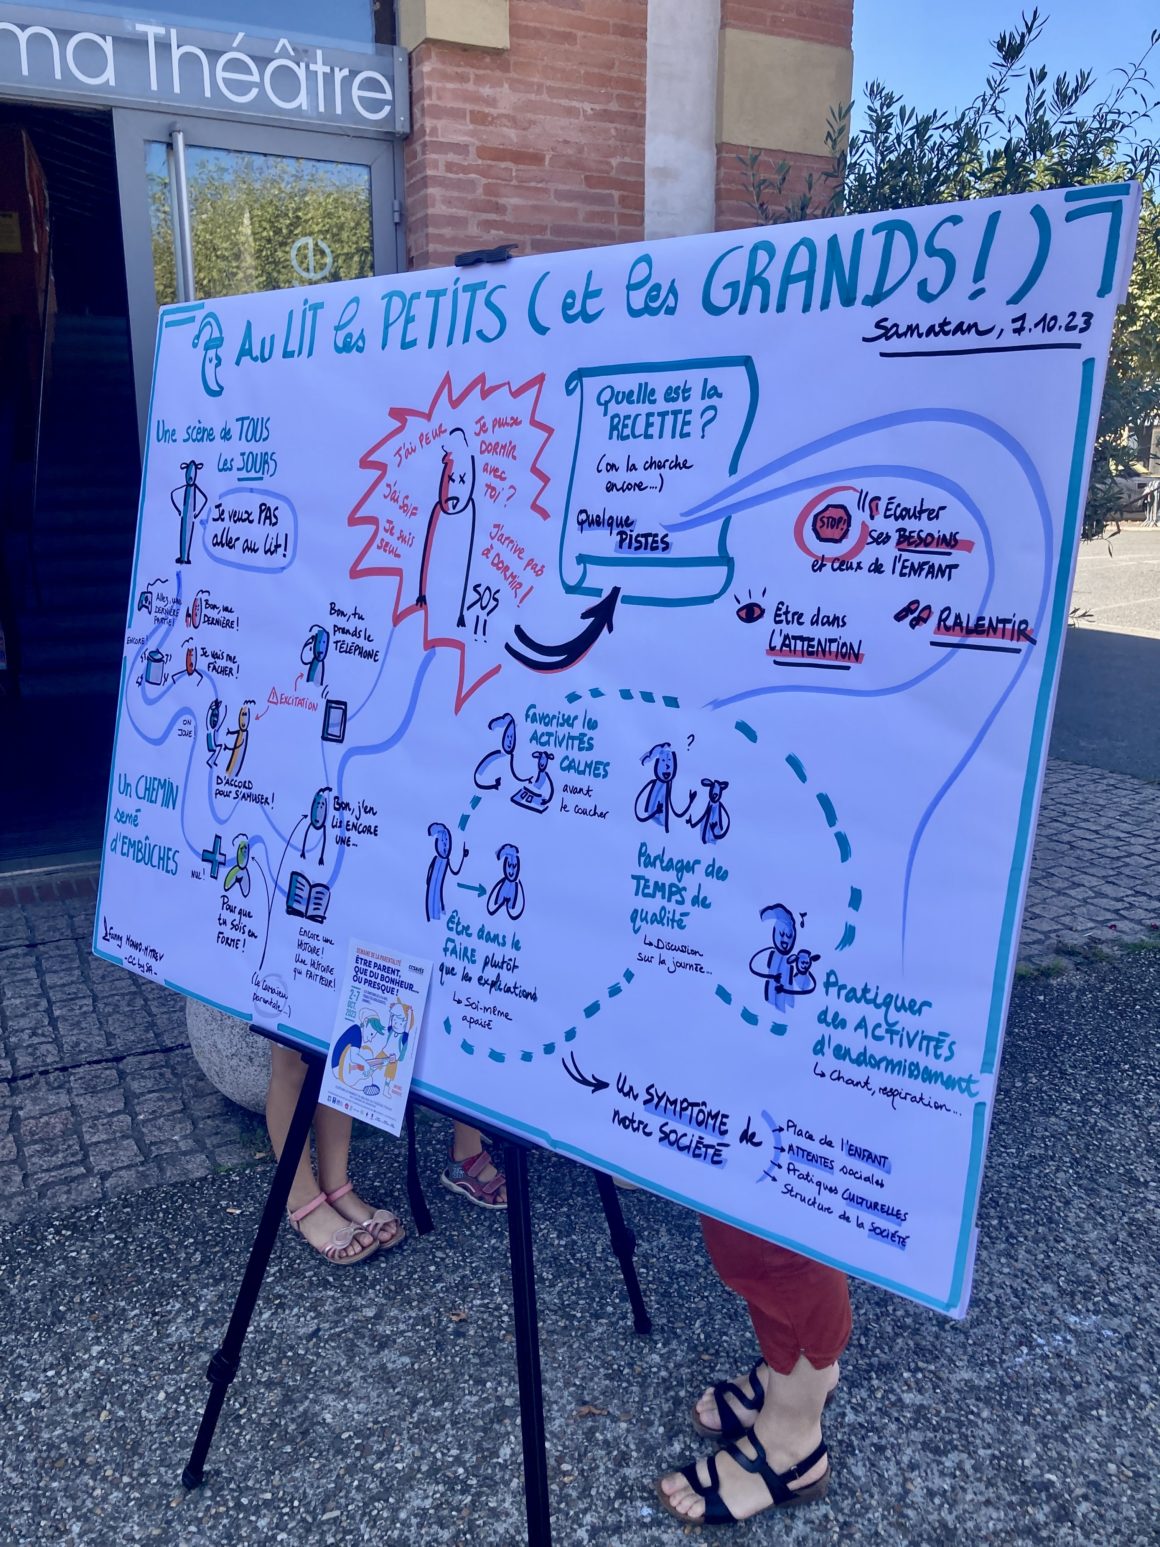 ma Théâtre
Au LIT les PETITS (et les GRANDS!)
Samatan, 7.10.23
Une scène de TOUS
les JOURS
Je veux PAS
aller au lit!
Allez, une
DERNIÈRE
PARTIE!
Bon, une
DERNIÈRE!
ENCORE!
Je vais me
FÂCHER!
Bon, tu
prends le
TÉLÉPHONE
EXCITATION
ON
JOUE
D'ACCORD
pour S'AMUSER!
Un CHEMIN
semé
d'EMBÛCHES
NUL!
Pour que
tu sois en
FORME!
Bon, j'en
lis ENCORE
UNE...
Encore une
HISTOIRE!
Une HISTOIRE
qui FAIT PEUR!
parentale...)
CC by SA
J'ai PEUR
Je peux
DORMIR
avec
TOI?
J'ai SOIF
Je suis
SEUL
J'arrive pas
à DORMIR!
SOS
!!
Quelle est la
RECETTE?
(on la cherche
encore...)
Quelque
PISTES
STOP!
Écouter
ses BESOINS
et ceux de l'ENFANT
Etre dans
L'ATTENTION
RALENTIR
Favoriser les
ACTIVITÉS
CALMES
avant
le coucher
?
Partager des
TEMPS de
qualité
↳ Discussion
sur la journée...
Être dans le
FAIRE plutôt
que les explications
↳ Soi-même
apaisé
Pratiquer
des ACTIVITÉS
d'endormissement
↳ Chant, respiration...
Un SYMPTÔME de
notre SOCIÉTÉ
Place de l'ENFANT
ATTENTES sociales
Pratiques CULTURELLES
Structure de la SOCIÉTÉ
SEMAINE DE LA PARENTALITÉ
ÊTRE PARENT,
QUE DU BONHEUR...
OU PRESQUE!
2-7
OCT
2023